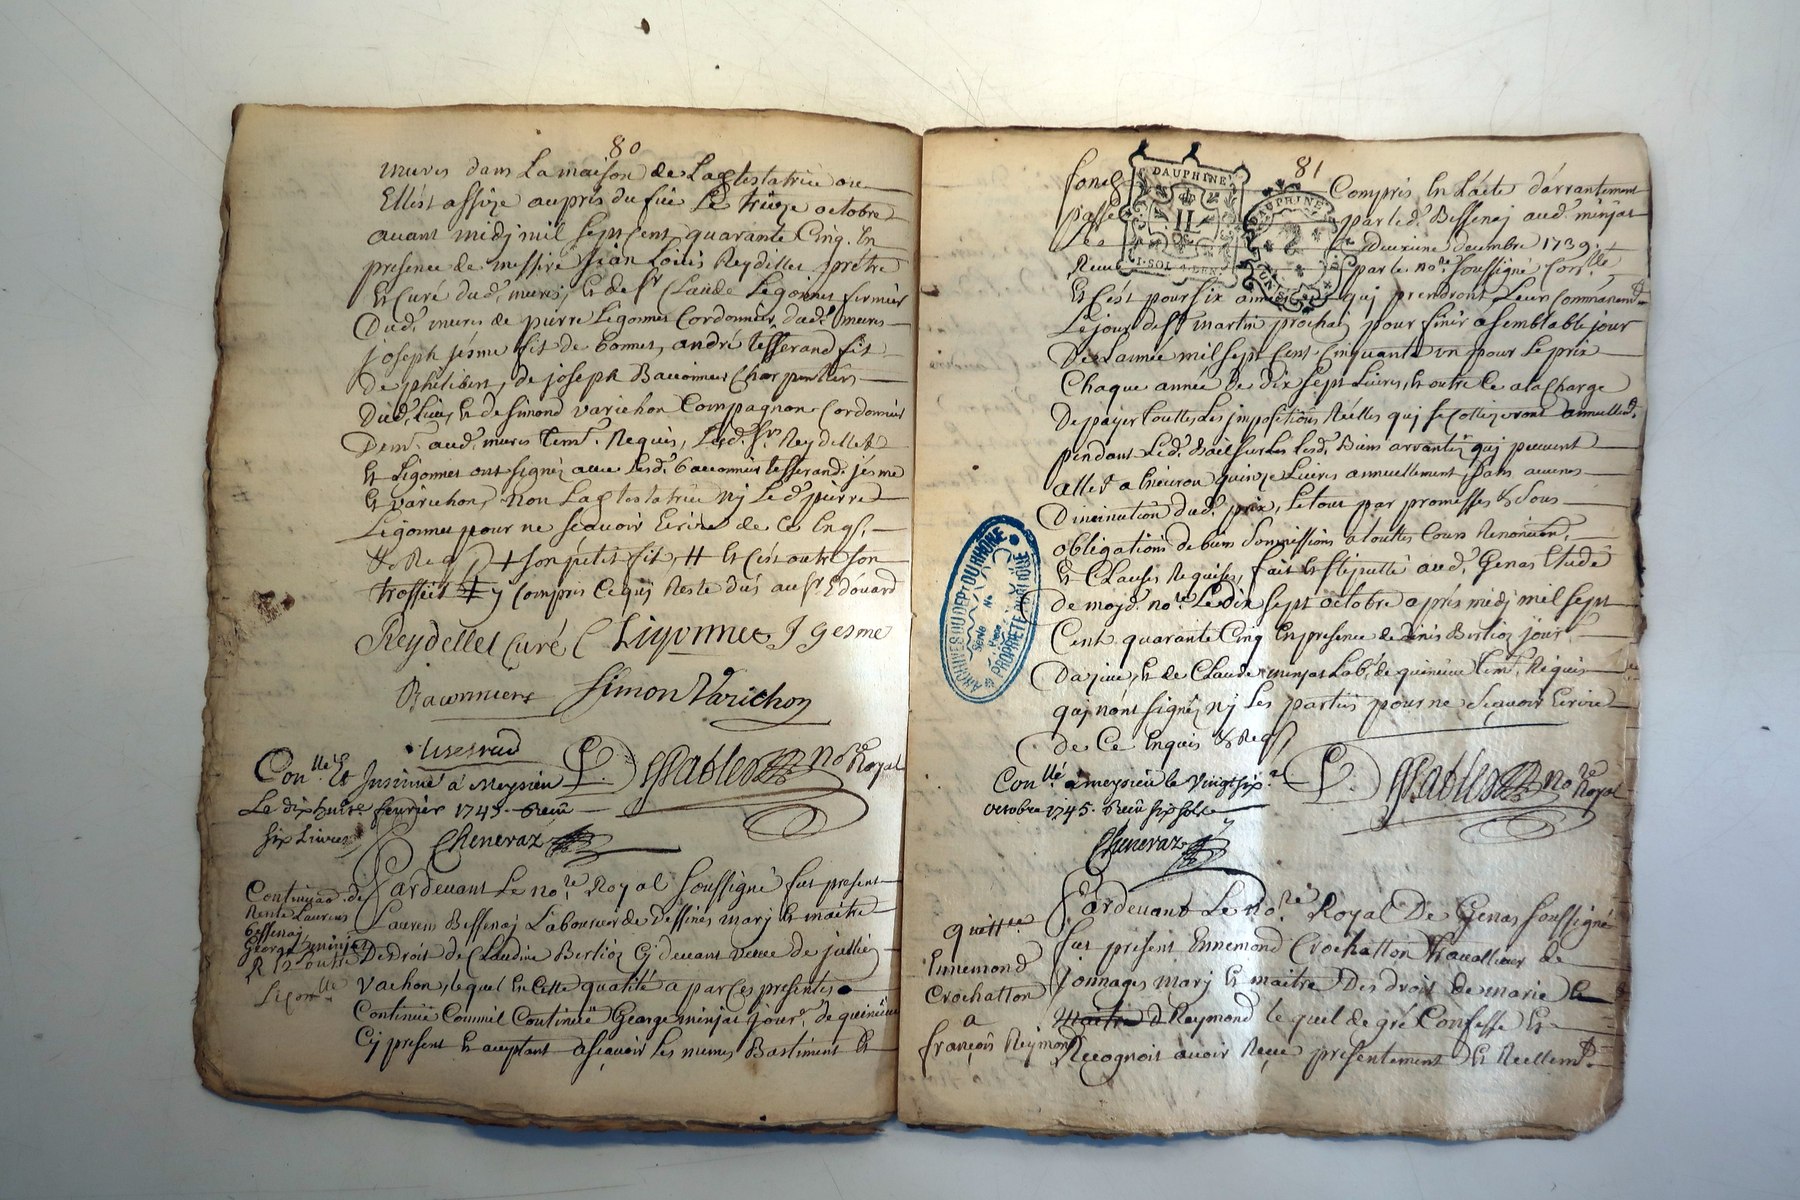 80
mures dans La maison de Lad. testatrice ou
Elle est assize aupres du feu Le treize octobre
avant midj mil sept cent quarante Cinq. En
presence de messire jean Loüis Reydellet prêtre
Et Curé dud. mures, Et de Sr Claude Ligonnet fermier
Dud. mures de pierre Ligonnet Cordonnier dud. mures
joseph jésme fit de Bonnet, andré tesserand fit
De philibert, de joseph Bauonnier Charpentiers
Dud. Lieu, Et de Simond varichon Compagnon Cordonnier
Dem. aud. mures tem. Requis, Lesd. Srs Reydellet
Et Ligonnet ont signés avec Lesd. Bauonnier tesserand jésme
Et varichon, non Lad. testatrice nj Led. pierre
Ligonnet pour ne sçavoir Ecrire de Ce Enqs.
& Req. + son petit fit, # Et c'est outre son
trossel ǂ y Compris Ce quj Reste dû au Sr Edoüard
Reydellet Curé C Liyonnet J Gesme
Bawnniere Simon Varichon
tuesrand
Conllé Et Insinué à Meyzieu
Le dix huite fevrier 1745. Receu
six Livres
Cheneraz
Pasles nore Royal
Continuãõ de
Rente Laurens
Bessenaj
George minjat
Pardevant Le nore Royal soussigné fut present
Laurens Bessenaj Laboureur de Dessines marj Et maitre
Des Droit de Claudine Berlioz Cj devant veuve de jullien
Vachon, lequel En Cette qualité a par Ces presentes
Continüé Comme il Continuë George minjat jourr. de quinsieu
Cj present Et acceptant asçavoir les mêmes Bastiment Et
81
fonds Compris En L'acte d'arrantement
passé par led. Bessenaj aud. minjat
Le Deuxieme decembre 1739.
Receu par le nore. soussigné Conllé,
DAUPHINÉ
II
1.SOL.4.DEN.
DAUPHINE
2
Et C'est pour six années quj prendront Leur Commancemt
Le jour de St martin prochain pour finir a semblable jour
De L'année mil sept Cent Cinquante un pour Le prix
Chaque année de dix sept Livres, Et outre Ce a la Charge
De payer touttes Les impositions Réelles quj se Cottizeront annuellemt.
pendant Led. Bail sur Les Lesd. Biens arrantés quj peuvent
aller a Environ quinze Livres annuellement sans aucune
Diminution dud. prix, Le tout par promesses & sous
obligations de biens Soumissions a touttes Cours Renonciaõn,
Et Clauses Requises, fait Et stipullé aud. Genas Etude
de moyd. nore. Le Dix sept octobre apres midj mil sept
Cent quarante Cinq En presence de dénis Berlioz jourr.
Dajuie, Et de Claude minjat Labr. de quinsieu tem. Requis
quj n'ont signés nj Les parties pour ne Sçavoir Ecrire
de Ce Enquis & Req.
ARCHIVES DU DEPT DU RHÔNE
Série
No
Pièce
PROPRIÉTÉ PUBLIQUE
Conllé à meyzieu le Vingt six
octobre 1745. Receu six sols
Cheneraz
Pasles nore Royal
quittce
Ennemond
Crochatton
a
françois Reymond
Pardevant Le nore. Royal De Genas soussigné
fut présent Ennemond Crochatton travailleur de
Jonnages marj Et maitre Des droit de marie
Reymond lequel de gré Confesse Et
Recognoit avoir Receu presentement Et Reellemt.